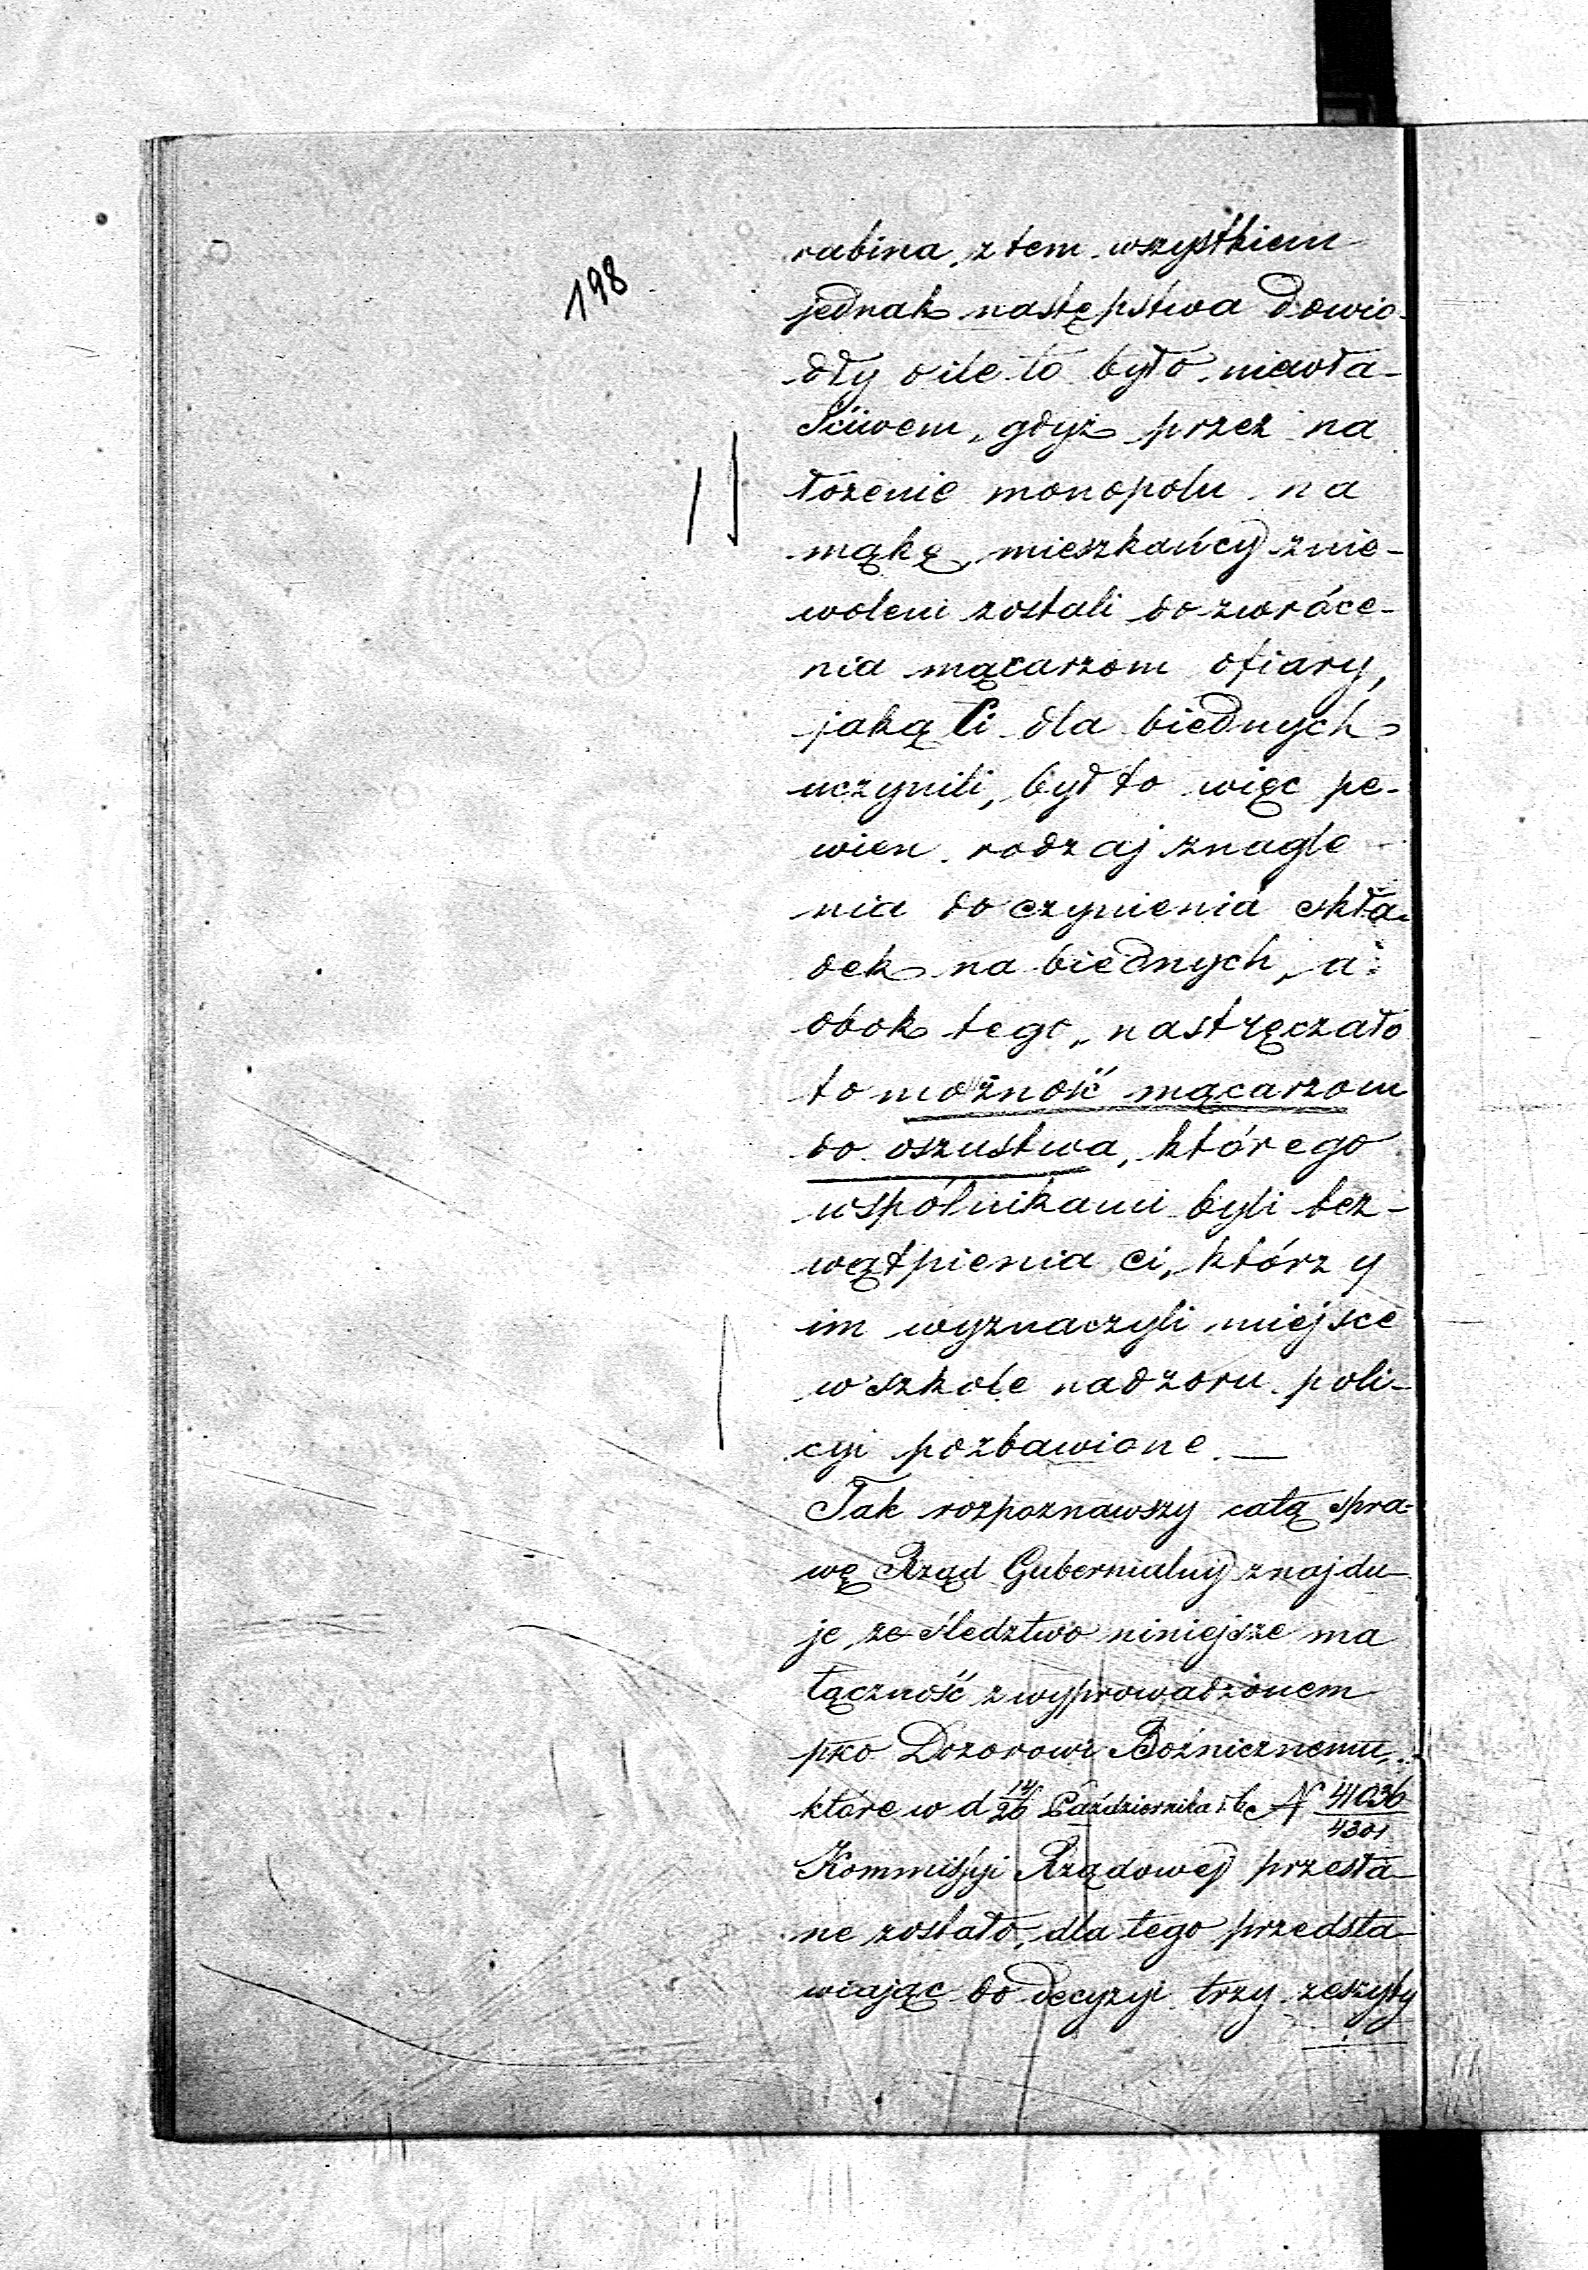 198
rabina, z tem wszystkiem
jednak następstwa dowio-
dły o ile to było niewła-
ściwem, gdyż przez na
łożenie monopolu na
mąkę, mieszkańcy znie-
woleni zostali do zwróce-
nia mącarzom ofiary,
jaką Ci dla biednych
uczynili, był to więc pe-
wien rodzaj znagle
nia do czynienia skła-
dek na biednych, a
obok tego, nastręczało
to możność mącarzom
do oszustwa, którego
wspólnikami byli bez-
wątpienia ci, którzy
im wyznaczyli miejsce
w szkole nadzoru poli-
cyi pozbawione. —
Tak rozpoznawszy całą spra-
wę Rząd Gubernialny znajdu-
je, że śledztwo niniejsze ma
łączność z wyprowadzonem
pko Dozorowi Bóżnicznemu,
które w d 14/26 Października r. b. N 41036/4301
Kommissyi Rządowej przesła-
ne zostało, dla tego przedsta-
wiając do decyzyi trzy zeszyty